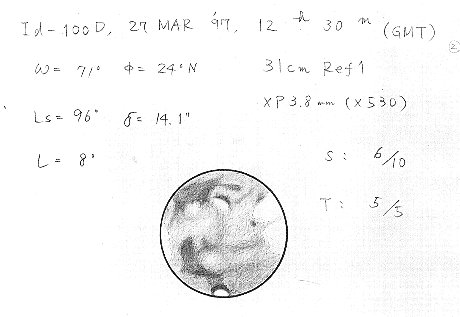 Id-100D, 27 MAR '97, 12ʰ 30ᵐ (GMT)
②
ω= 71° φ= 24°N
31cm Refl
XP3.8mm (×530)
Ls= 96° δ= 14.1"
L= 8°
S: 6/10
T: 5/5